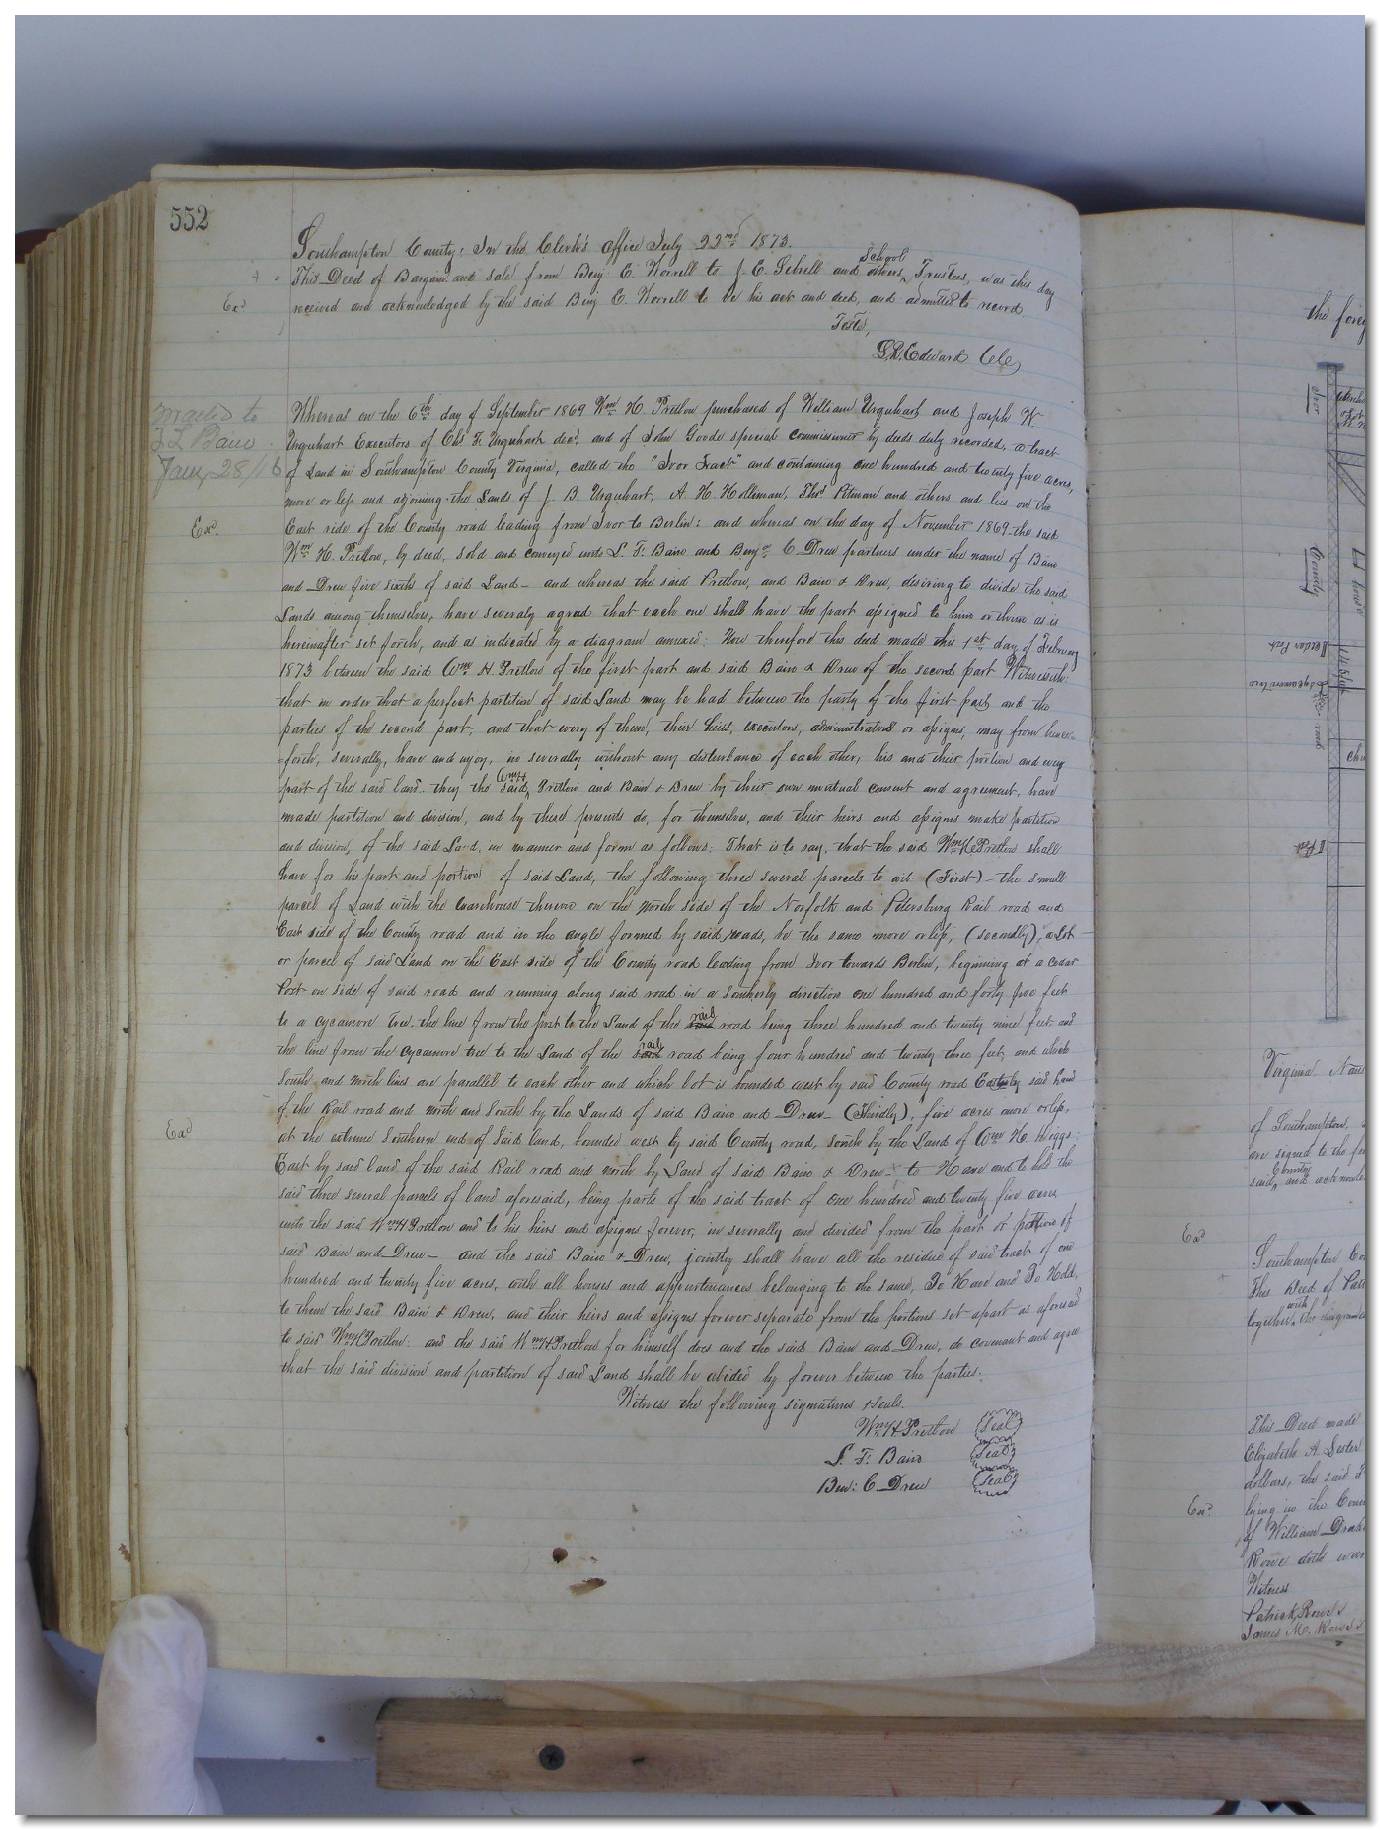 552
Southampton County: In the Clerk's office July 22nd 1873.
This Deed of Bargain and sale from Benj E. Worrell to J. E. Sebrell and others School Trustees, was this day
Exd received and acknowledged by the said Benj E. Worrell to be his act and deed, and admitted to record
Teste,
L. R. Edwards Clk
to
Bain
Jany 28/16
Whereas on the 6th day of September 1869 Wm H. Pretlow purchased of William Urquhart and Joseph W.
Urquhart Executors of Chs F. Urquhart decd. and of John Goode special commissioner by deeds duly recorded, a tract
of Land in Southampton County Virginia, called the "Ivor Tract" and containing one hundred and twenty five acres,
more or less and adjoining the Lands of J. B. Urquhart, A. H. Holliman, Thos Pitman and others and lies on the
Exd East side of the County road leading from Ivor to Berlin: and whereas on the day of November 1869 the said
Wm H. Pretlow, by deed, sold and conveyed unto L. F. Bain and Benj C Drew partners under the name of Bain
and Drew five sixths of said Land - and whereas the said Pretlow, and Bain & Drew, desiring to divide the said
Lands among themselves, have severaly agreed that each one shall have the part assigned to him or them as is
hereinafter set forth, and as indicated by a diagram annexed: Now therefore this deed made this 1st day of February
1873 between the said Wm H Pretlow of the first part and said Bain & Drew of the second part Witnesseth:
that in order that a perfect partition of said Land may be had between the party of the first part, and the
parties of the second part, and that every of them, their heirs, executors, administrators or assigns, may from hence=
=forth, severally, have and enjoy, in severally without any disturbance of each other, his and their portion and every
part of the said land. they the said Wm H Pretlow and Bain & Drew by their own mutual consent and agreement, have
made partition and division, and by these presents do, for themselves, and their heirs and assigns make partition
and division, of the said Land, in manner and form as follows: That is to say, that the said Wm H. Pretlow shall
have for his part and portion of said Land, the following three several parcels to wit (First) - the small
parcel of Land with the Warehouse thereon on the North side of the Norfolk and Petersburg Rail road and
East side of the County road and in the angle formed by said roads, be the same more or less, (secondly), a Lot
or parcel of said Land on the East side of the County road leading from Ivor towards Berlin, beginning at a cedar
Post on side of said road and running along said road in a Southerly direction one hundred and forty five feet
to a cycamore tree. the line from the post to the Land of the rail road being three hundred and twenty nine feet and
the line from the cycamore tree to the Land of the rail road being four hundred and twenty three feet, and which
South and North lines are parallel to each other and which lot is bounded west by said County road Easterly said Land
of the Rail road and North and South by the Lands of said Bain and Drew - (Thirdly), five acres more or less,
Exd at the extreme Southern end of said land, bounded west by said County road, South by the Land of Wm H. Briggs:
East by said land of the said Rail road and North by Land of said Bain & Drew - to Have and to hold the
said three several parcels of land aforesaid, being parts of the said tract of one hundred and twenty five acres
unto the said Wm H Pretlow and to his heirs and assigns forever, in severally and divided from the part or portion of
said Bain and Drew - and the said Bain & Drew, jointly shall have all the residue of said tract of one
hundred and twenty five acres, with all houses and appurtenances belonging to the same, To Have and To Hold,
to them the said Bain & Drew, and their heirs and assigns forever separate from the portions set apart as aforesaid
to said Wm H Pretlow. and the said Wm H Pretlow for himself does and the said Bain and Drew, do covenant and agree
that the said division and partition of said Land shall be abided by forever between the parties.
Witness the following signatures & seals.
Wm H Pretlow (Seal)
L. F. Bain (Seal)
Benj: C Drew (Seal)
the foreg
County
Cedar Post
Virginia
of Southampton,
are signed to the fo
said County and acknowle
Exd
Southampton Co
This Deed of Par
together with the diagram
This Deed made
Elizabeth A.
dollars, the said
Exd lying in the Coun
of William Drak
Rowe doth
Witness
Patrick
James M.